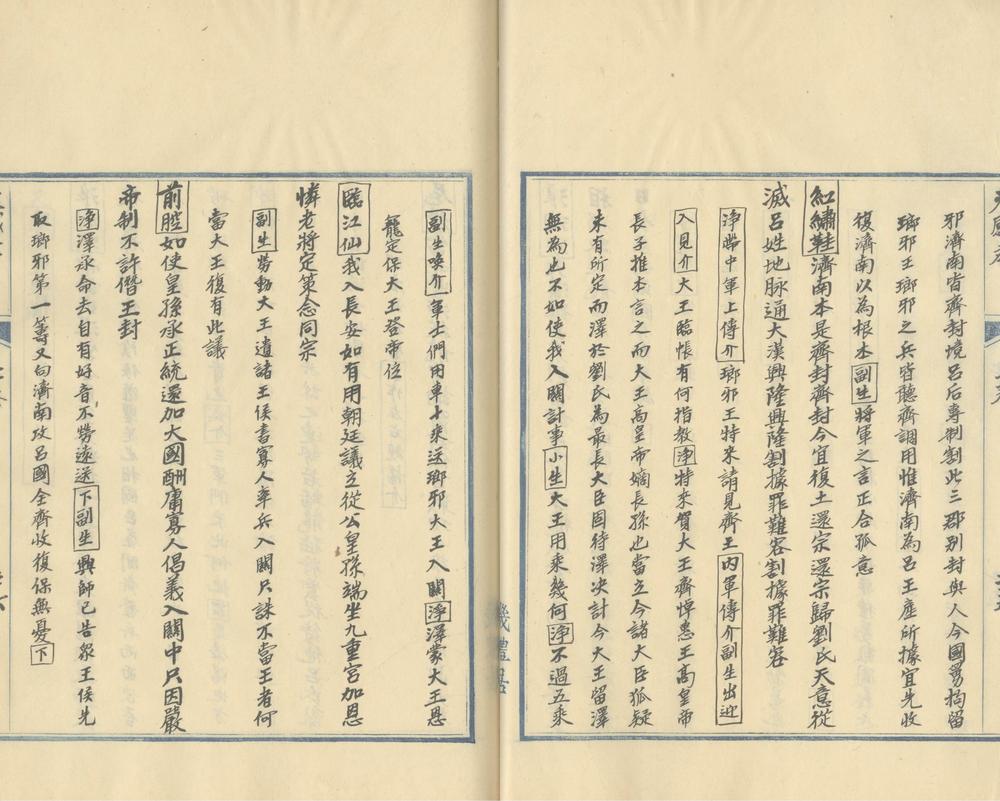 邪濟南皆齊封境呂后專制割此三郡別封與人今國舅拘留
瑯邪王瑯邪之兵皆聽齊調用惟濟南為呂王產所據宜先收
復濟南以為根本副生將軍之言正合孤意
紅繡鞋濟南本是齊封齊封今宜復土還宗還宗歸劉氏天意從
滅呂姓地脉通大漢興隆興隆割據罪難容割據罪難容
淨帶中軍上傳介瑯邪王特来請見齊王內軍傳介副生出迎
入見介大王臨帳有何指教淨特来賀大王齊悼惠王高皇帝
長子推本言之而大王高皇帝嫡長孫也當立今諸大臣狐疑
未有所定而澤於劉氏為最長大臣固待澤决計今大王留澤
無為也不如使我入關計事小生大王用乘幾何淨不過五乘
副生喚介軍士們用車十乘送瑯邪大王入關淨澤蒙大王恩
寵定保大王登帝位
臨江仙我入長安如有用朝廷議立從公皇孫端坐九重宮加恩
憐老將定策念同宗
副生勞動大王遺諸王侯書寡人率兵入關只誅不當王者何
當大王復有此議
前腔如使皇孫承正統還加大國酬庸寡人倡義入關中只因嚴
帝制不許僭王封
淨澤承命去自有好音不勞遠送下副生興師已告眾王侯先
取瑯邪第一籌又向濟南攻呂國全齊收復保無憂下